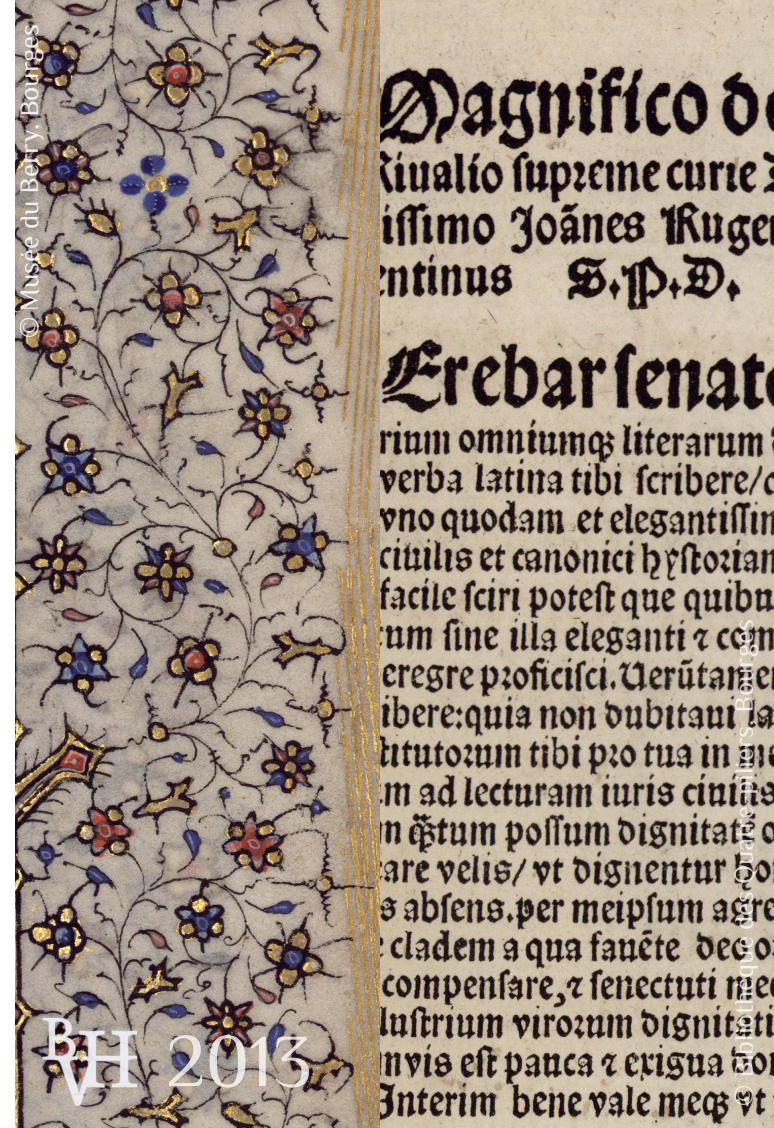 © Musée du Berry, Bourges
Magnifico do
Riualio supreme curie
issimo Joãnes Ruge
entinus S.P.D.
Erebar senato
rium omniumqꝫ literarum
verba latina tibi scribere/
vno quodam et elegantissi
ciuilis et canonici hystorian
facile sciri potest que quibu
rum sine illa eleganti ⁊ com
eregre proficisci. Uerũtamen
ibere: quia non dubitaui la
titutorum tibi pro tua in me
m ad lecturam iuris ciuilis
n q̃tum possum dignitati o
are velis/ vt dignentur ho
s absens. per meipsum agre
cladem a qua fauẽte deo o
compensare, ⁊ senectuti mee
lustrium virorum dignitati
nvis est pauca ⁊ exigua do
Interim bene vale meqꝫ vt
© Bibliothèque des Quatre-piliers, Bourges
BVH 2013